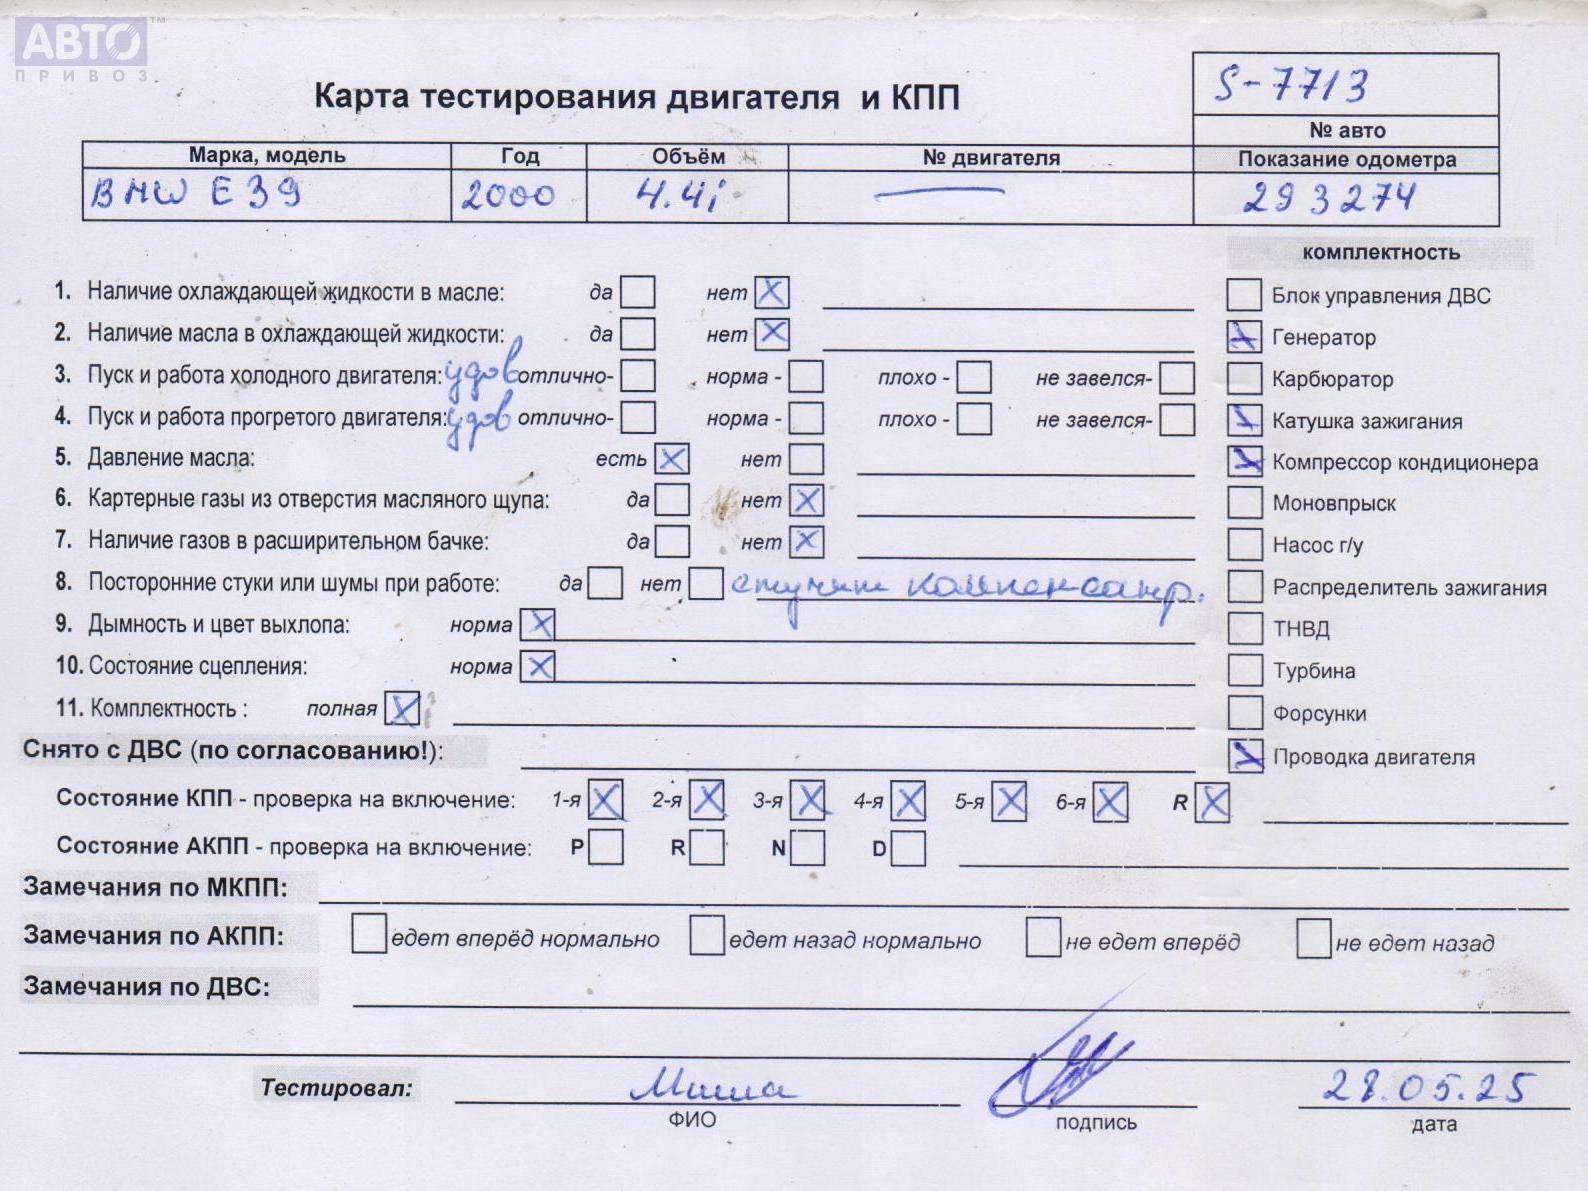 АВТО™
ПРИВОЗ
S-7713
Карта тестирования двигателя и КПП
№ авто
Марка, модель Год Объём № двигателя Показание одометра
BMW E39 2000 4.4i — 293274
комплектность
1. Наличие охлаждающей жидкости в масле: да нет X
Блок управления ДВС
2. Наличие масла в охлаждающей жидкости: да нет X
X Генератор
3. Пуск и работа холодного двигателя: удов отлично- норма - плохо - не завелся-
Карбюратор
4. Пуск и работа прогретого двигателя: удов отлично- норма - плохо - не завелся-
X Катушка зажигания
5. Давление масла: есть X нет
X Компрессор кондиционера
6. Картерные газы из отверстия масляного щупа: да нет X
Моновпрыск
7. Наличие газов в расширительном бачке: да нет X
Насос г/у
8. Посторонние стуки или шумы при работе: да нет стучит компенсатр.
Распределитель зажигания
9. Дымность и цвет выхлопа: норма X
ТНВД
10. Состояние сцепления: норма X
Турбина
11. Комплектность : полная X
Форсунки
Снято с ДВС (по согласованию!):
X Проводка двигателя
Состояние КПП - проверка на включение: 1-я X 2-я X 3-я X 4-я X 5-я X 6-я X R X
Состояние АКПП - проверка на включение: P R N D
Замечания по МКПП:
Замечания по АКПП: едет вперёд нормально едет назад нормально не едет вперёд не едет назад
Замечания по ДВС:
Тестировал: Миша 28.05.25
ФИО подпись дата